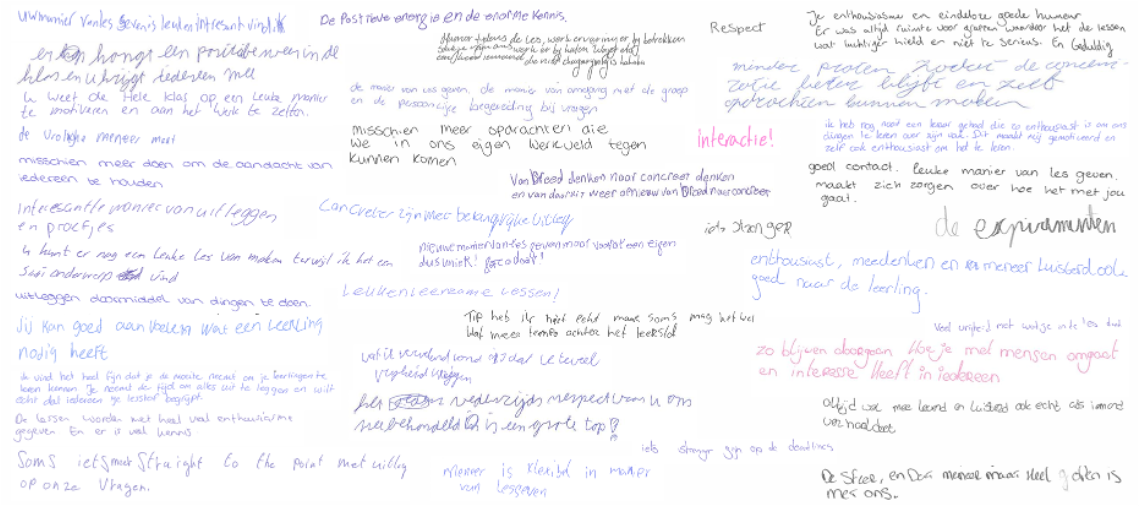 uw manier van les geven is leuk en intresant vind ik
er hangt een positieve in de
klas en u krijgt iedereen mee
U weet de Hele klas op een Leuke manier
te motiveren en aan het werk te zetten.
de vrolijke meneer meet
misschien meer doen om de aandacht van
iedereen te houden
Interessante manier van uitleggen
en proefjes
U kunt er nog een Leuke Les van maken terwijl ik het een
saai onderwerp vind
uitleggen doormiddel van dingen te doen.
Jij kan goed aanvoelen wat een leerling
nodig heeft
Ik vind het heel fijn dat je de moeite neemt om je leerlingen te
leren kennen. Je neemt de tijd om alles uit te leggen en wilt
echt dat iedereen je lesstof begrijpt.
De lessen worden met heel veel enthousiasme
gegeven En er is veel kennis
Soms iets meer Straight to the point met uitleg
op onze vragen.
De Positieve energie en de enorme kennis.
Humor tijdens de les,
de manier van les geven. de manier van omgang met de groep
en de persoonlijke begeleiding bij vragen
misschien meer opdrachten die
we in ons eigen werkveld tegen
kunnen komen
Van Breed denken naar concreet denken
en van daaruit weer opnieuw van Breed naar concreet
Concreter zijn met belangrijke uitleg
nieuwe manier van les geven maar vooral een eigen
dus uniek! ga zo door!
Leuke leerzame lessen!
Tip heb ik niet echt maar soms mag het wel
wat meer tempo achter het leerstof
wat ik vervelend vond is dat ze te veel
vrijheid krijgen
het wederzijds respect van u ons
is een grote top!
iets strenger zijn op de deadlines
meneer is flexibel in manier
van lesgeven
Respect
interactie!
iets strenger
Je enthousiasme en eindeloze goede humeur
Er was altijd ruimte voor grappen waardoor het de lessen
wat luchtiger hield en niet te serieus. En Geduldig
minder praten zodat de concen-
tratie beter blijft en zelf
opdrachten kunnen maken
ik heb nog nooit een leraar gehad die zo enthousiast is om ons
dingen te leren over zijn vak. Dit maakt mij gemotiveerd en
zelf ook enthousiast om het te leren.
goed contact. Leuke manier van les geven.
maakt zich zorgen over hoe het met jou
gaat.
de expirimenten
enthousiast, meedenken en meneer luisterd ook
goed naar de leerling.
Veel vrijheid met wat je in de les doet
zo blijven doorgaan Hoe je met mensen omgaat
en interesse Heeft in iedereen
Altijd wel mee leeft en luisterd ook echt als iemand
verhaal doet
De sfeer, en Dat meneer maar Heel is
met ons.